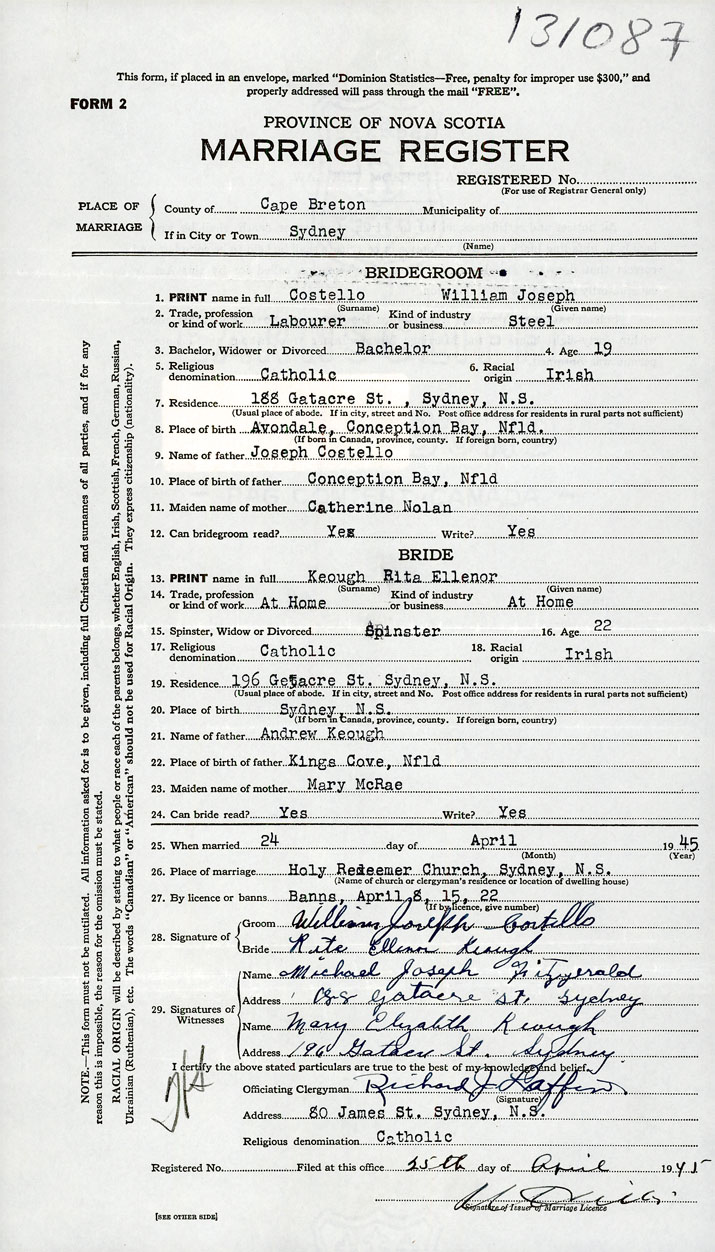 131087
This form, if placed in an envelope, marked “Dominion Statistics—Free, penalty for improper use $300,” and
properly addressed will pass through the mail “FREE”.
FORM 2
PROVINCE OF NOVA SCOTIA
MARRIAGE REGISTER
REGISTERED No.
(For use of Registrar General only)
PLACE OF MARRIAGE
County of Cape Breton Municipality of
If in City or Town Sydney
(Name)
BRIDEGROOM
1. PRINT name in full Costello William Joseph
(Surname) (Given name)
2. Trade, profession or kind of work Labourer Kind of industry or business Steel
3. Bachelor, Widower or Divorced Bachelor 4. Age 19
5. Religious denomination Catholic 6. Racial origin Irish
7. Residence 188 Gatacre St. , Sydney, N.S.
(Usual place of abode. If in city, street and No. Post office address for residents in rural parts not sufficient)
8. Place of birth Avondale, Conception Bay, Nfld.
(If born in Canada, province, county. If foreign born, country)
9. Name of father Joseph Costello
10. Place of birth of father Conception Bay, Nfld
11. Maiden name of mother Catherine Nolan
12. Can bridegroom read? Yes Write? Yes
BRIDE
13. PRINT name in full Keough Rita Ellenor
(Surname) (Given name)
14. Trade, profession or kind of work At Home Kind of industry or business At Home
15. Spinster, Widow or Divorced Spinster 16. Age 22
17. Religious denomination Catholic 18. Racial origin Irish
19. Residence 196 Getacre St. Sydney, N.S.
(Usual place of abode. If in city, street and No. Post office address for residents in rural parts not sufficient)
20. Place of birth Sydney, N.S.
(If born in Canada, province, county. If foreign born, country)
21. Name of father Andrew Keough
22. Place of birth of father Kings Cove, Nfld
23. Maiden name of mother Mary McRae
24. Can bride read? Yes Write? Yes
25. When married 24 day of April 1945
(Month) (Year)
26. Place of marriage Holy Redeemer Church, Sydney, N.S.
(Name of church or clergyman's residence or location of dwelling house)
27. By licence or banns Banns, April 8, 15, 22
(If by licence, give number)
28. Signature of
Groom William Joseph Costello
Bride Rita Ellenor Keough
29. Signatures of Witnesses
Name Michael Joseph Fitzgerald
Address 188 Gatacre St. Sydney
Name Mary Elizabeth Keough
Address 196 Gatacre St. Sydney
I certify the above stated particulars are true to the best of my knowledge and belief.
Officiating Clergyman Richard J Laffin
(Signature)
Address 80 James St. Sydney, N.S.
Religious denomination Catholic
Registered No. Filed at this office 25th day of April 1945
Signature of Issuer of Marriage Licence
[SEE OTHER SIDE]
NOTE.—This form must not be mutilated. All information asked for is to be given, including full Christian and surnames of all parties, and if for any
reason this is impossible, the reason for the omission must be stated.
RACIAL ORIGIN will be described by stating to what people or race each of the parents belongs, whether English, Irish, Scottish, French, German, Russian,
Ukrainian (Ruthenian), etc. The words “Canadian” or “American” should not be used for Racial Origin. They express citizenship (nationality).